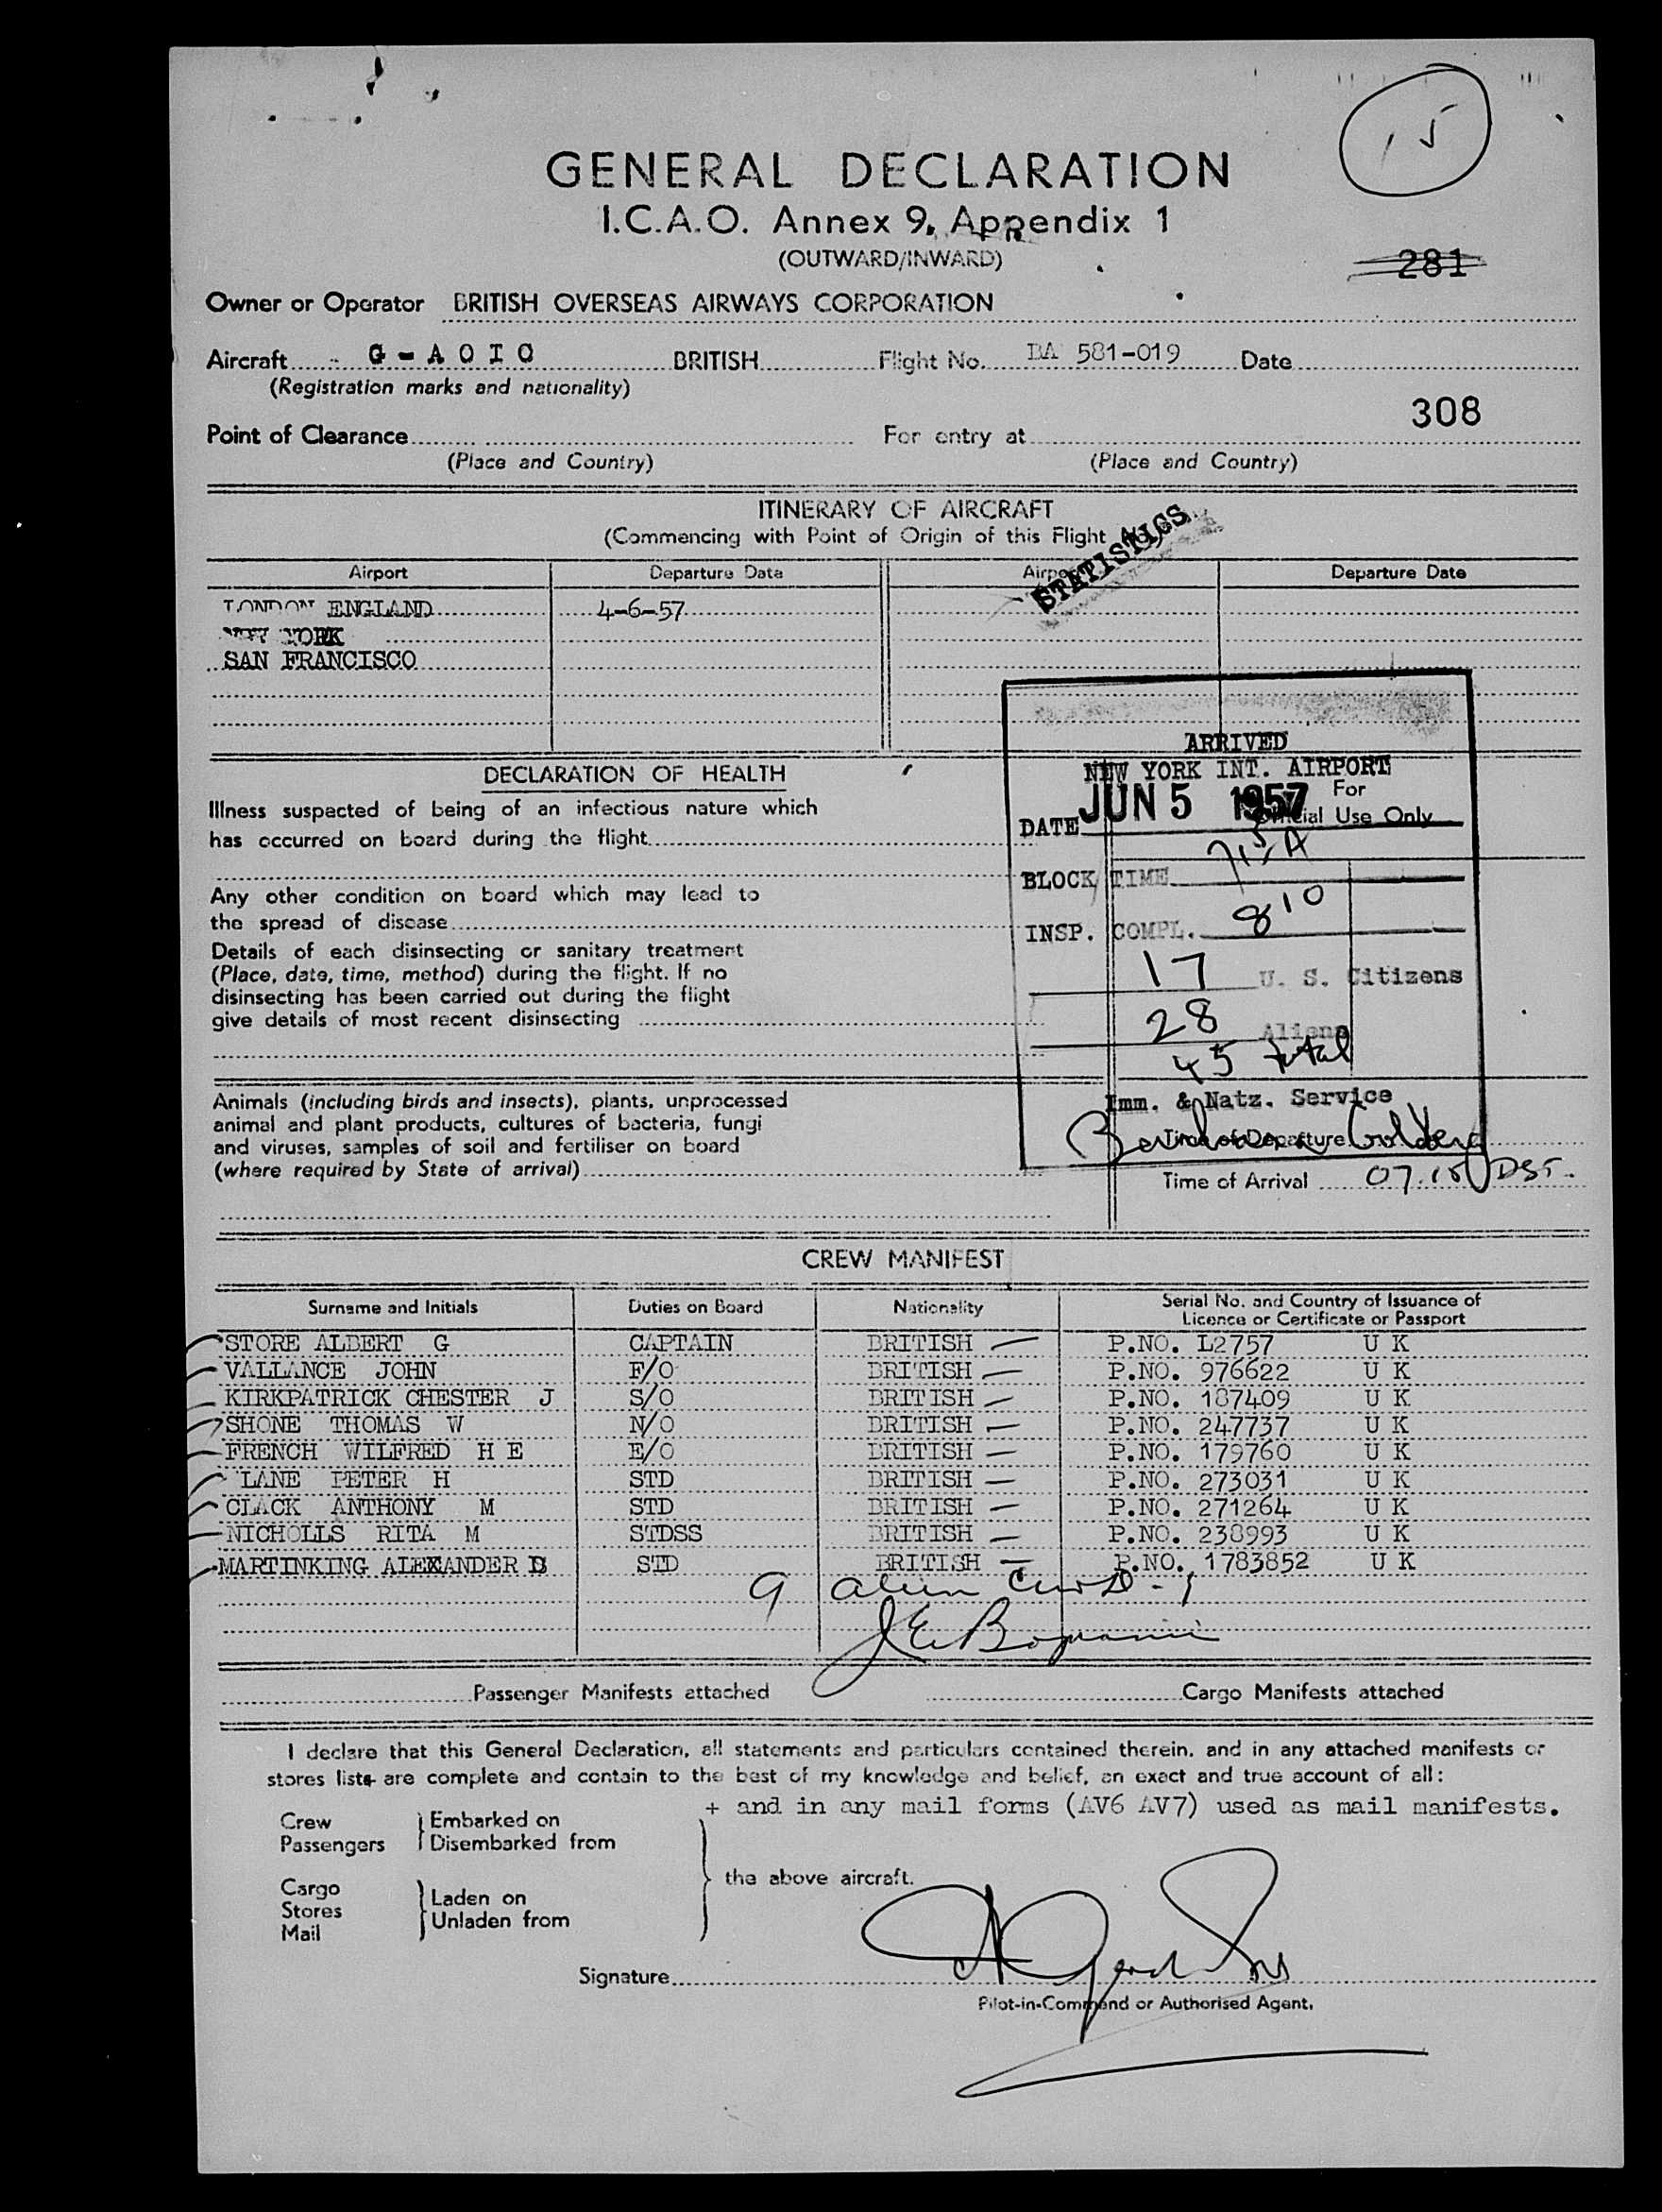 15
GENERAL DECLARATION
I.C.A.O. Annex 9, Appendix 1
(OUTWARD/INWARD)
281
Owner or Operator BRITISH OVERSEAS AIRWAYS CORPORATION
Aircraft G-AOIO BRITISH Flight No. BA 581-019 Date
(Registration marks and nationality)
308
Point of Clearance For entry at
(Place and Country) (Place and Country)
ITINERARY OF AIRCRAFT
(Commencing with Point of Origin of this Flight
STATISTICS
Airport Departure Date Airport Departure Date
LONDON ENGLAND 4-6-57
NEW YORK
SAN FRANCISCO
ARRIVED
NEW YORK INT. AIRPORT
DECLARATION OF HEALTH
For
Official Use Only
DATE JUN 5 1957
Illness suspected of being of an infectious nature which
has occurred on board during the flight
BLOCK TIME 715A
Any other condition on board which may lead to
the spread of disease
INSP. COMPL. 810
Details of each disinsecting or sanitary treatment
(Place, date, time, method) during the flight. If no
disinsecting has been carried out during the flight
give details of most recent disinsecting
17 U. S. Citizens
28 Aliens
45 total
Imm. & Natz. Service
Animals (including birds and insects), plants, unprocessed
animal and plant products, cultures of bacteria, fungi
and viruses, samples of soil and fertiliser on board
(where required by State of arrival)
Time of Departure
Time of Arrival 07.15 DST.
CREW MANIFEST
Surname and Initials Duties on Board Nationality Serial No. and Country of Issuance of
Licence or Certificate or Passport
STORE ALBERT G CAPTAIN BRITISH P.NO. L2757 U K
VALLANCE JOHN F/O BRITISH P.NO. 976622 U K
KIRKPATRICK CHESTER J S/O BRITISH P.NO. 187409 U K
SHONE THOMAS W N/O BRITISH P.NO. 247737 U K
FRENCH WILFRED H E E/O BRITISH P.NO. 179760 U K
LANE PETER H STD BRITISH P.NO. 273031 U K
CLACK ANTHONY M STD BRITISH P.NO. 271264 U K
NICHOLLS RITA M STDSS BRITISH P.NO. 238993 U K
MARTINKING ALEXANDER D STD BRITISH P.NO. 1783852 U K
9 alien crew
Passenger Manifests attached Cargo Manifests attached
I declare that this General Declaration, all statements and particulars contained therein, and in any attached manifests or
stores lists+ are complete and contain to the best of my knowledge and belief, an exact and true account of all:
+ and in any mail forms (AV6 AV7) used as mail manifests.
Crew Embarked on
Passengers Disembarked from
the above aircraft.
Cargo
Stores Laden on
Mail Unladen from
Signature
Pilot-in-Command or Authorised Agent.